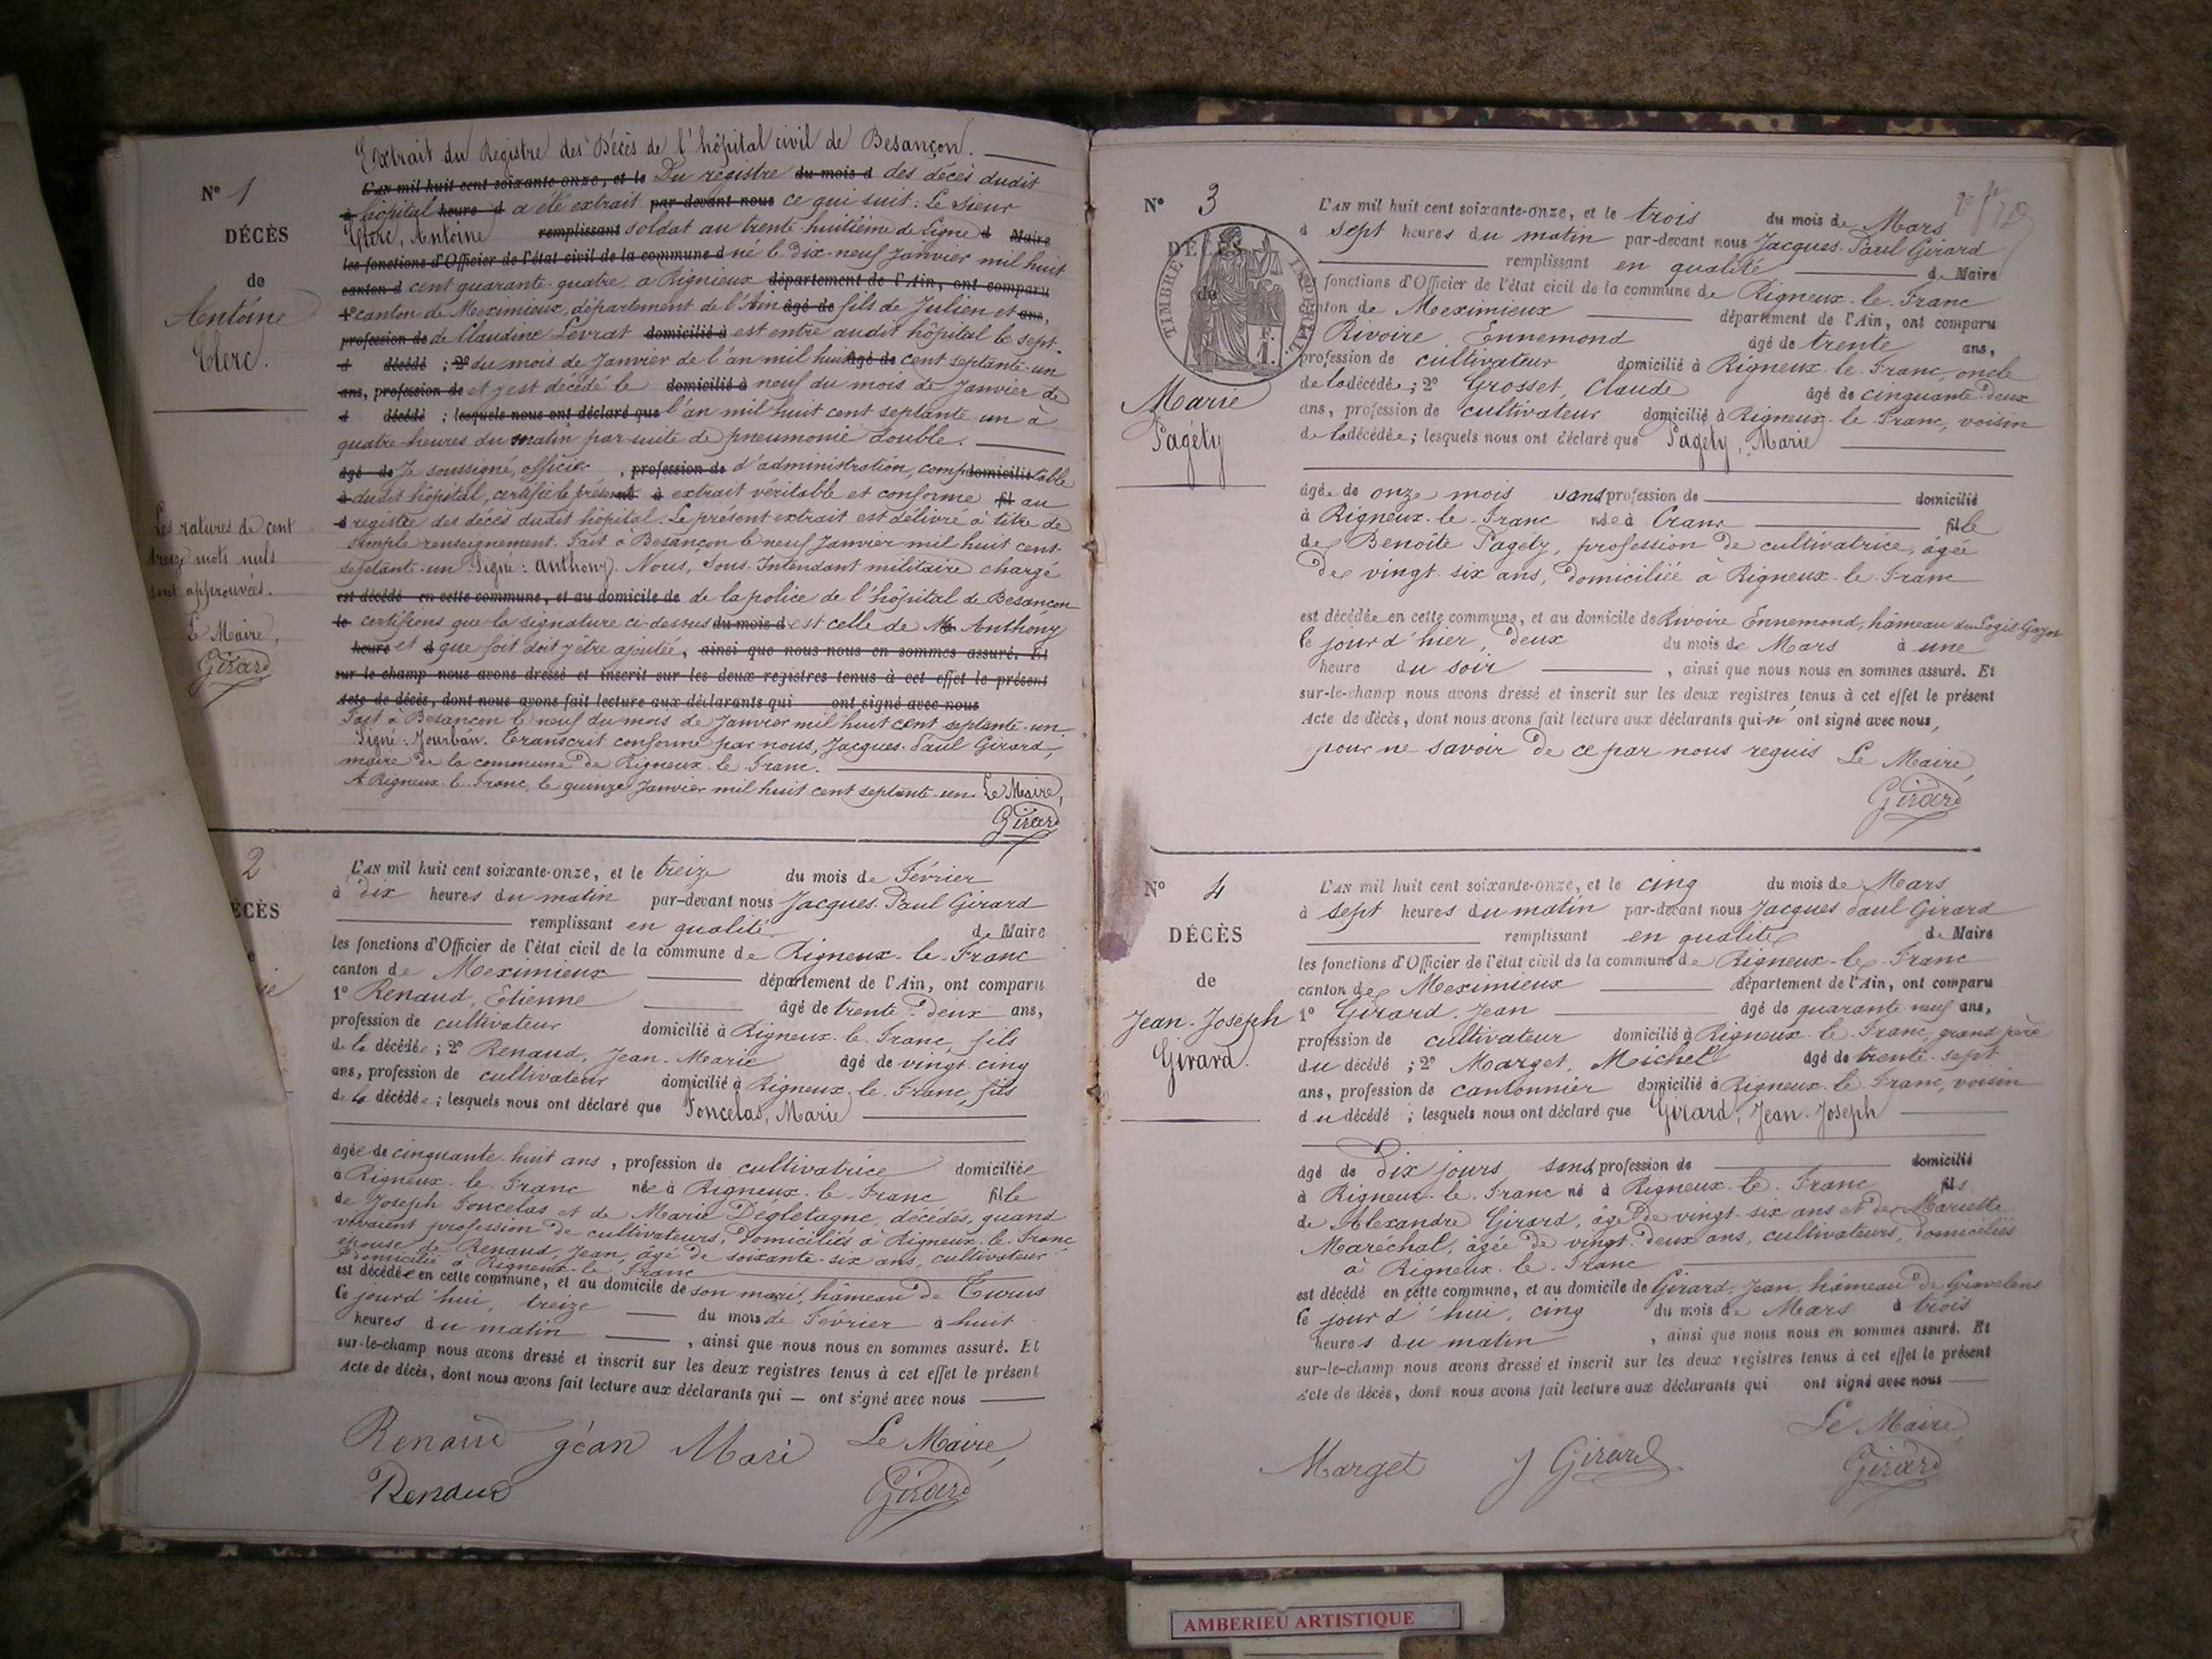 Extrait du Registre des Décès de l'hôpital civil de Besançon.
N° 1
DÉCÈS
de
Antoine
Clerc.
L'AN mil huit cent soixante-onze, et le Du registre du mois d des décès dudit
à hôpital heure d a été extrait par-devant nous ce qui suit : Le Sieur
Clerc, Antoine remplissant soldat au trente huitième de Ligne d Maire
les fonctions d'Officier de l'état civil de la commune d né le dix-neuf Janvier mil huit
canton d cent quarante-quatre, à Rignieux département de l'Ain, ont comparu
1° canton de Meximieux, département de l'Ain âgé de fils de Julien et ans,
profession de de Claudine Levrat domicilié à est entré audit hôpital le sept
d décédé ; 2° du mois de Janvier de l'an mil huit âgé de cent septante-un
ans, profession de et y est décédé le domicilié à neuf du mois de Janvier de
d décédé ; lesquels nous ont déclaré que l'an mil huit cent septante un à
quatre heures du matin par suite de pneumonie double.
âgé de Je soussigné, officier , profession de d'administration, comp domicilié table
à dudit hôpital, certifie le présent à extrait véritable et conforme fil au
d registre des décès dudit hôpital. Le présent extrait est délivré à titre de
simple renseignement. Fait à Besançon le neuf Janvier mil huit cent
septante-un Signé : Anthony. Nous, Sous-Intendant militaire chargé
est décédé en cette commune, et au domicile de de la police de l'hôpital de Besançon
le certifions que la signature ci-dessus du mois d est celle de Mr Anthony
heure et d que foit doit y être ajoutée, ainsi que nous nous en sommes assuré. Et
sur-le-champ nous avons dressé et inscrit sur les deux registres tenus à cet effet le présent
acte de décès, dont nous avons fait lecture aux déclarants qui ont signé avec nous
Fait à Besançon le neuf du mois de Janvier mil huit cent septante-un.
Signé : Jourbán. Transcrit conforme par nous, Jacques-Paul Girard,
maire de la commune de Rigneux-le-Franc.
A Rigneux-le-Franc, le quinze Janvier mil huit cent septante-un. Le Maire,
Girard
Les ratures de cent
treize mots nuls
sont approuvées.
Le Maire,
Girard
2
ÉCÈS
L'AN mil huit cent soixante-onze, et le treize du mois de Février
à dix heures du matin par-devant nous Jacques-Paul Girard
remplissant en qualité de Maire
les fonctions d'Officier de l'état civil de la commune de Rigneux-le-Franc
canton de Meximieux département de l'Ain, ont comparu
1° Renaud, Etienne âgé de trente-deux ans,
profession de cultivateur domicilié à Rigneux-le-Franc, fils
de la décédée ; 2° Renaud, Jean-Marie âgé de vingt-cinq
ans, profession de cultivateur domicilié à Rigneux-le-Franc, fils
de la décédée ; lesquels nous ont déclaré que Poncelas, Marie
âgée de cinquante-huit ans , profession de cultivatrice domiciliée
à Rigneux-le-Franc née à Rigneux-le-Franc fille
de Joseph Poncelas et de Marie Degletagne, décédés, quand
vivaient profession de cultivateurs, domiciliés à Rigneux-le-Franc
épouse de Renaud, Jean, âgé de soixante-six ans, cultivateur
domicilié à Rigneux-le-Franc
est décédée en cette commune, et au domicile de son mari, hâmeau de Turus
le jourd'hui, treize du mois de Février à huit
heures du matin , ainsi que nous nous en sommes assuré. Et
sur-le-champ nous avons dressé et inscrit sur les deux registres tenus à cet effet le présent
Acte de décès, dont nous avons fait lecture aux déclarants qui — ont signé avec nous
Renaud géan Mari Le Maire,
Renaud Girard
N° 3
DÉCÈS
de
TIMBRE IMPÉRIAL
Marie
Pagéty
L'AN mil huit cent soixante-onze, et le trois du mois de Mars
à sept heures du matin par-devant nous Jacques-Paul Girard
remplissant en qualité de Maire
fonctions d'Officier de l'état civil de la commune de Rigneux-le-Franc
canton de Meximieux département de l'Ain, ont comparu
Rivoire, Ennemond âgé de trente ans,
profession de cultivateur domicilié à Rigneux-le-Franc, oncle
de la décédée ; 2° Grosset, Claude âgé de cinquante-deux
ans, profession de cultivateur domicilié à Rigneux-le-Franc, voisin
de la décédée ; lesquels nous ont déclaré que Pagety, Marie
âgée de onze mois sans profession de domicilié
à Rigneux-le-Franc née à Crans fille
de Benoîte Pagéty, profession de cultivatrice, âgée
de vingt-six ans, domiciliée à Rigneux-le-Franc
est décédée en cette commune, et au domicile de Rivoire Ennemond, hâmeau du Logis
le jour d'hier, deux du mois de Mars à une
heure du soir , ainsi que nous nous en sommes assuré. Et
sur-le-champ nous avons dressé et inscrit sur les deux registres tenus à cet effet le présent
Acte de décès, dont nous avons fait lecture aux déclarants qui n'ont signé avec nous,
pour ne savoir de ce par nous requis Le Maire,
Girard
N° 4
DÉCÈS
de
Jean-Joseph
Girard.
L'AN mil huit cent soixante-onze, et le cinq du mois de Mars
à sept heures du matin par-devant nous Jacques Paul Girard
remplissant en qualité de Maire
les fonctions d'Officier de l'état civil de la commune de Rigneux-le-Franc
canton de Meximieux département de l'Ain, ont comparu
1° Girard, Jean âgé de quarante neuf ans,
profession de cultivateur domicilié à Rigneux-le-Franc, grand père
du décédé ; 2° Marget, Michel âgé de trente-sept
ans, profession de cantonnier domicilié à Rigneux-le-Franc, voisin
du décédé ; lesquels nous ont déclaré que Girard, Jean-Joseph
âgé de dix jours sans profession de domicilié
à Rigneux-le-Franc né à Rigneux-le-Franc fils
de Alexandre Girard, âgé de vingt-six ans et de Mariette
Maréchal, âgée de vingt-deux ans, cultivateurs, domiciliés
à Rigneux-le-Franc
est décédé en cette commune, et au domicile de Girard, Jean, hâmeau de Gravelens
le jourd'hui, cinq du mois de Mars à trois
heures du matin , ainsi que nous nous en sommes assuré. Et
sur-le-champ nous avons dressé et inscrit sur les deux registres tenus à cet effet le présent
Acte de décès, dont nous avons fait lecture aux déclarants qui ont signé avec nous
Le Maire,
Marget J Girard Girard
AMBERIEU ARTISTIQUE